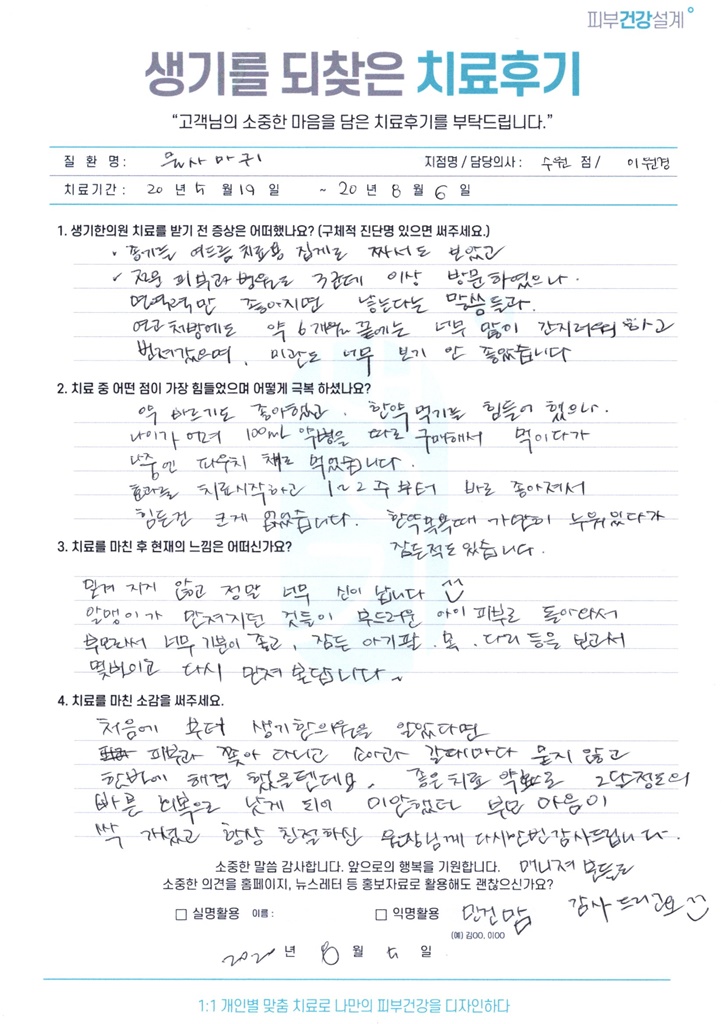 피부건강설계
생기를 되찾은 치료후기
“고객님의 소중한 마음을 담은 치료후기를 부탁드립니다.”
질 환 명 : 물사마귀 지점명 / 담당의사 : 수원 점 / 이원경
치료기간 : 20 년 5 월 19 일 ~ 20 년 8 월 6 일
1. 생기한의원 치료를 받기 전 증상은 어떠했나요? (구체적 진단명 있으면 써주세요.)
종기를 여드름 치료용 집게로 짜서도 보았고
피부과 병원도 3군데 이상 방문하였으나.
면역력만 좋아지면 낳는다는 말씀들과.
연고처방에도 약 6개월 끝에는 너무 많이 간지러워하고
번져갔으며, 미관도 너무 보기 안 좋았습니다
2. 치료 중 어떤 점이 가장 힘들었으며 어떻게 극복 하셨나요?
약 바르기도 좋아했고, 한약 먹기를 힘들어 했으나.
나이가 어려 100mL 약병을 따로 구매해서 먹이다가
나중엔 파우치 채로 먹었습니다.
효과를 치료시작하고 1~2주부터 바로 좋아져서
힘든건 크게 없었습니다. 한약목욕때 가만히 누워있다가
3. 치료를 마친 후 현재의 느낌은 어떠신가요? 잠든적도 있습니다.
믿겨 지지 않고 정말 너무 신이 납니다
알맹이가 만져지던 것들이 부드러운 아이 피부로 돌아와서
부모라서 너무 기분이 좋고, 잠든 아기 팔. 목. 다리 등을 보고서
몇번이고 다시 만져 본답니다~
4. 치료를 마친 소감을 써주세요.
처음에 부터 생기한의원을 알았다면
피부과 쫓아 다니고 소아과 갈때마다 묻지 않고
한번에 해결 했을텐데요. 좋은 치료 약으로 2달정도의
빠른 회복으로 낫게 되어 미안했던 부모 마음이
싹 가셨고 항상 친절하신 원장님께 다시한번 감사드립니다.
소중한 말씀 감사합니다. 앞으로의 행복을 기원합니다. 매니져 분들도
소중한 의견을 홈페이지, 뉴스레터 등 홍보자료로 활용해도 괜찮으신가요? 감사드리고요
□ 실명활용 이름 : □ 익명활용 민건맘
(예) 김OO, 이OO
2020 년 8 월 5 일
1:1 개인별 맞춤 치료로 나만의 피부건강을 디자인하다